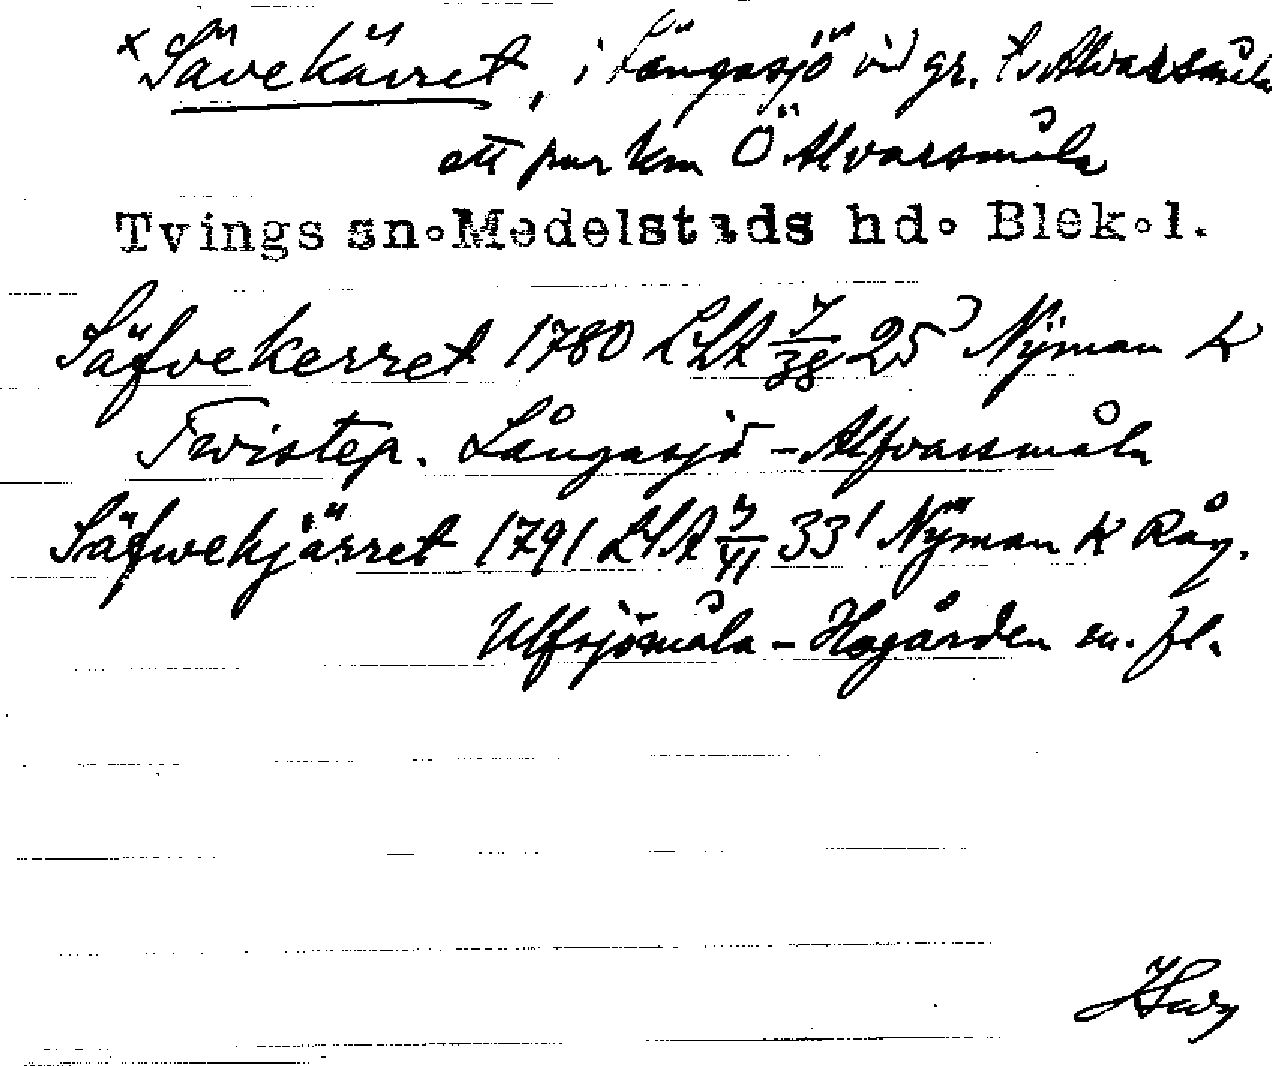 × Sävekärret, i Långasjö vid gr. t. Alvarsmåla
ett par km Ö Alvarsmåla
Tvings sn. Medelstads hd. Blek. l.
Säfvekerret 1780 LSA 7/38 25 Nyman K
Twistep. Långasjö - Alfvarsmåla
Säfwekjärret 1791 LSA 7/VI 33 Nyman K Råg.
Ulfsjömåla - Hogården m. fl.